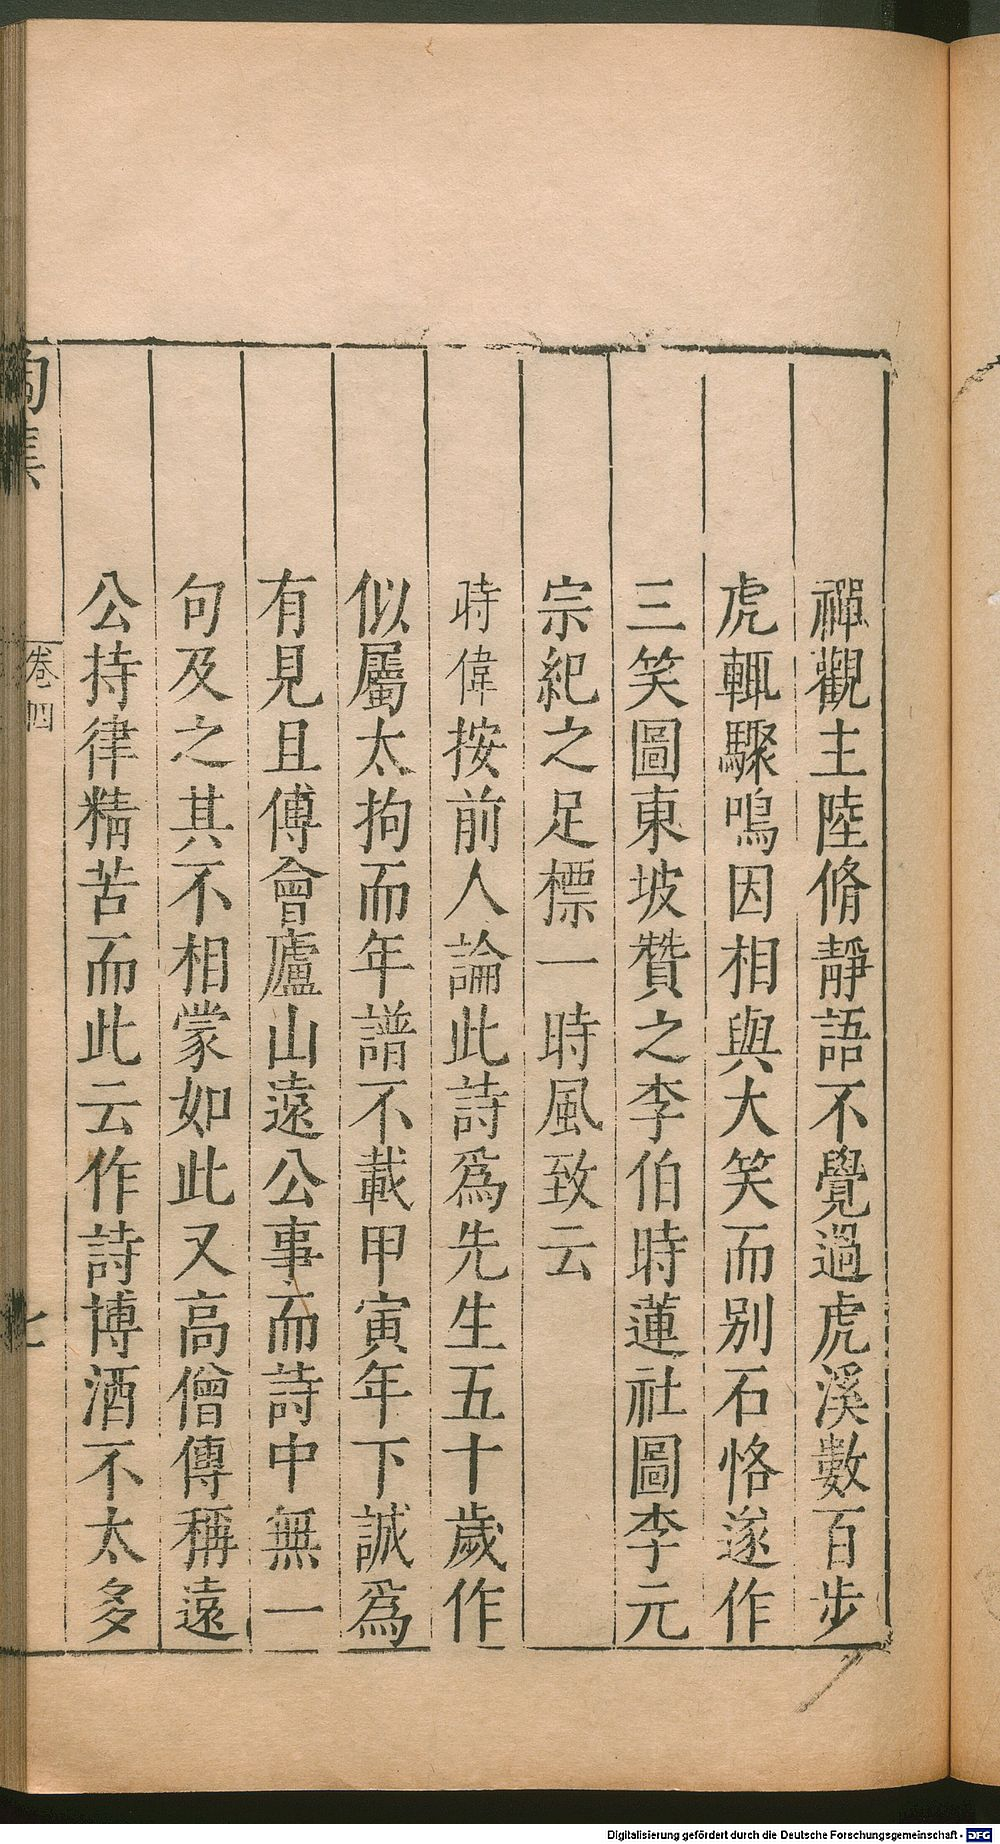 禪觀主陸脩靜語不覺過虎溪數百步
虎輒驟鳴因相與大笑而别石恪遂作
三笑圖東坡贊之李伯時蓮社圖李元
宗紀之足標一時風致云
時偉按前人論此詩爲先生五十歲作
似屬太拘而年譜不載甲寅年下誠爲
有見且傅會廬山遠公事而詩中無一
句及之其不相蒙如此又高僧傳稱遠
公持律精苦而此云作詩博酒不太多
陶集
卷四
七
Digitalisierung gefördert durch die Deutsche Forschungsgemeinschaft - DFG